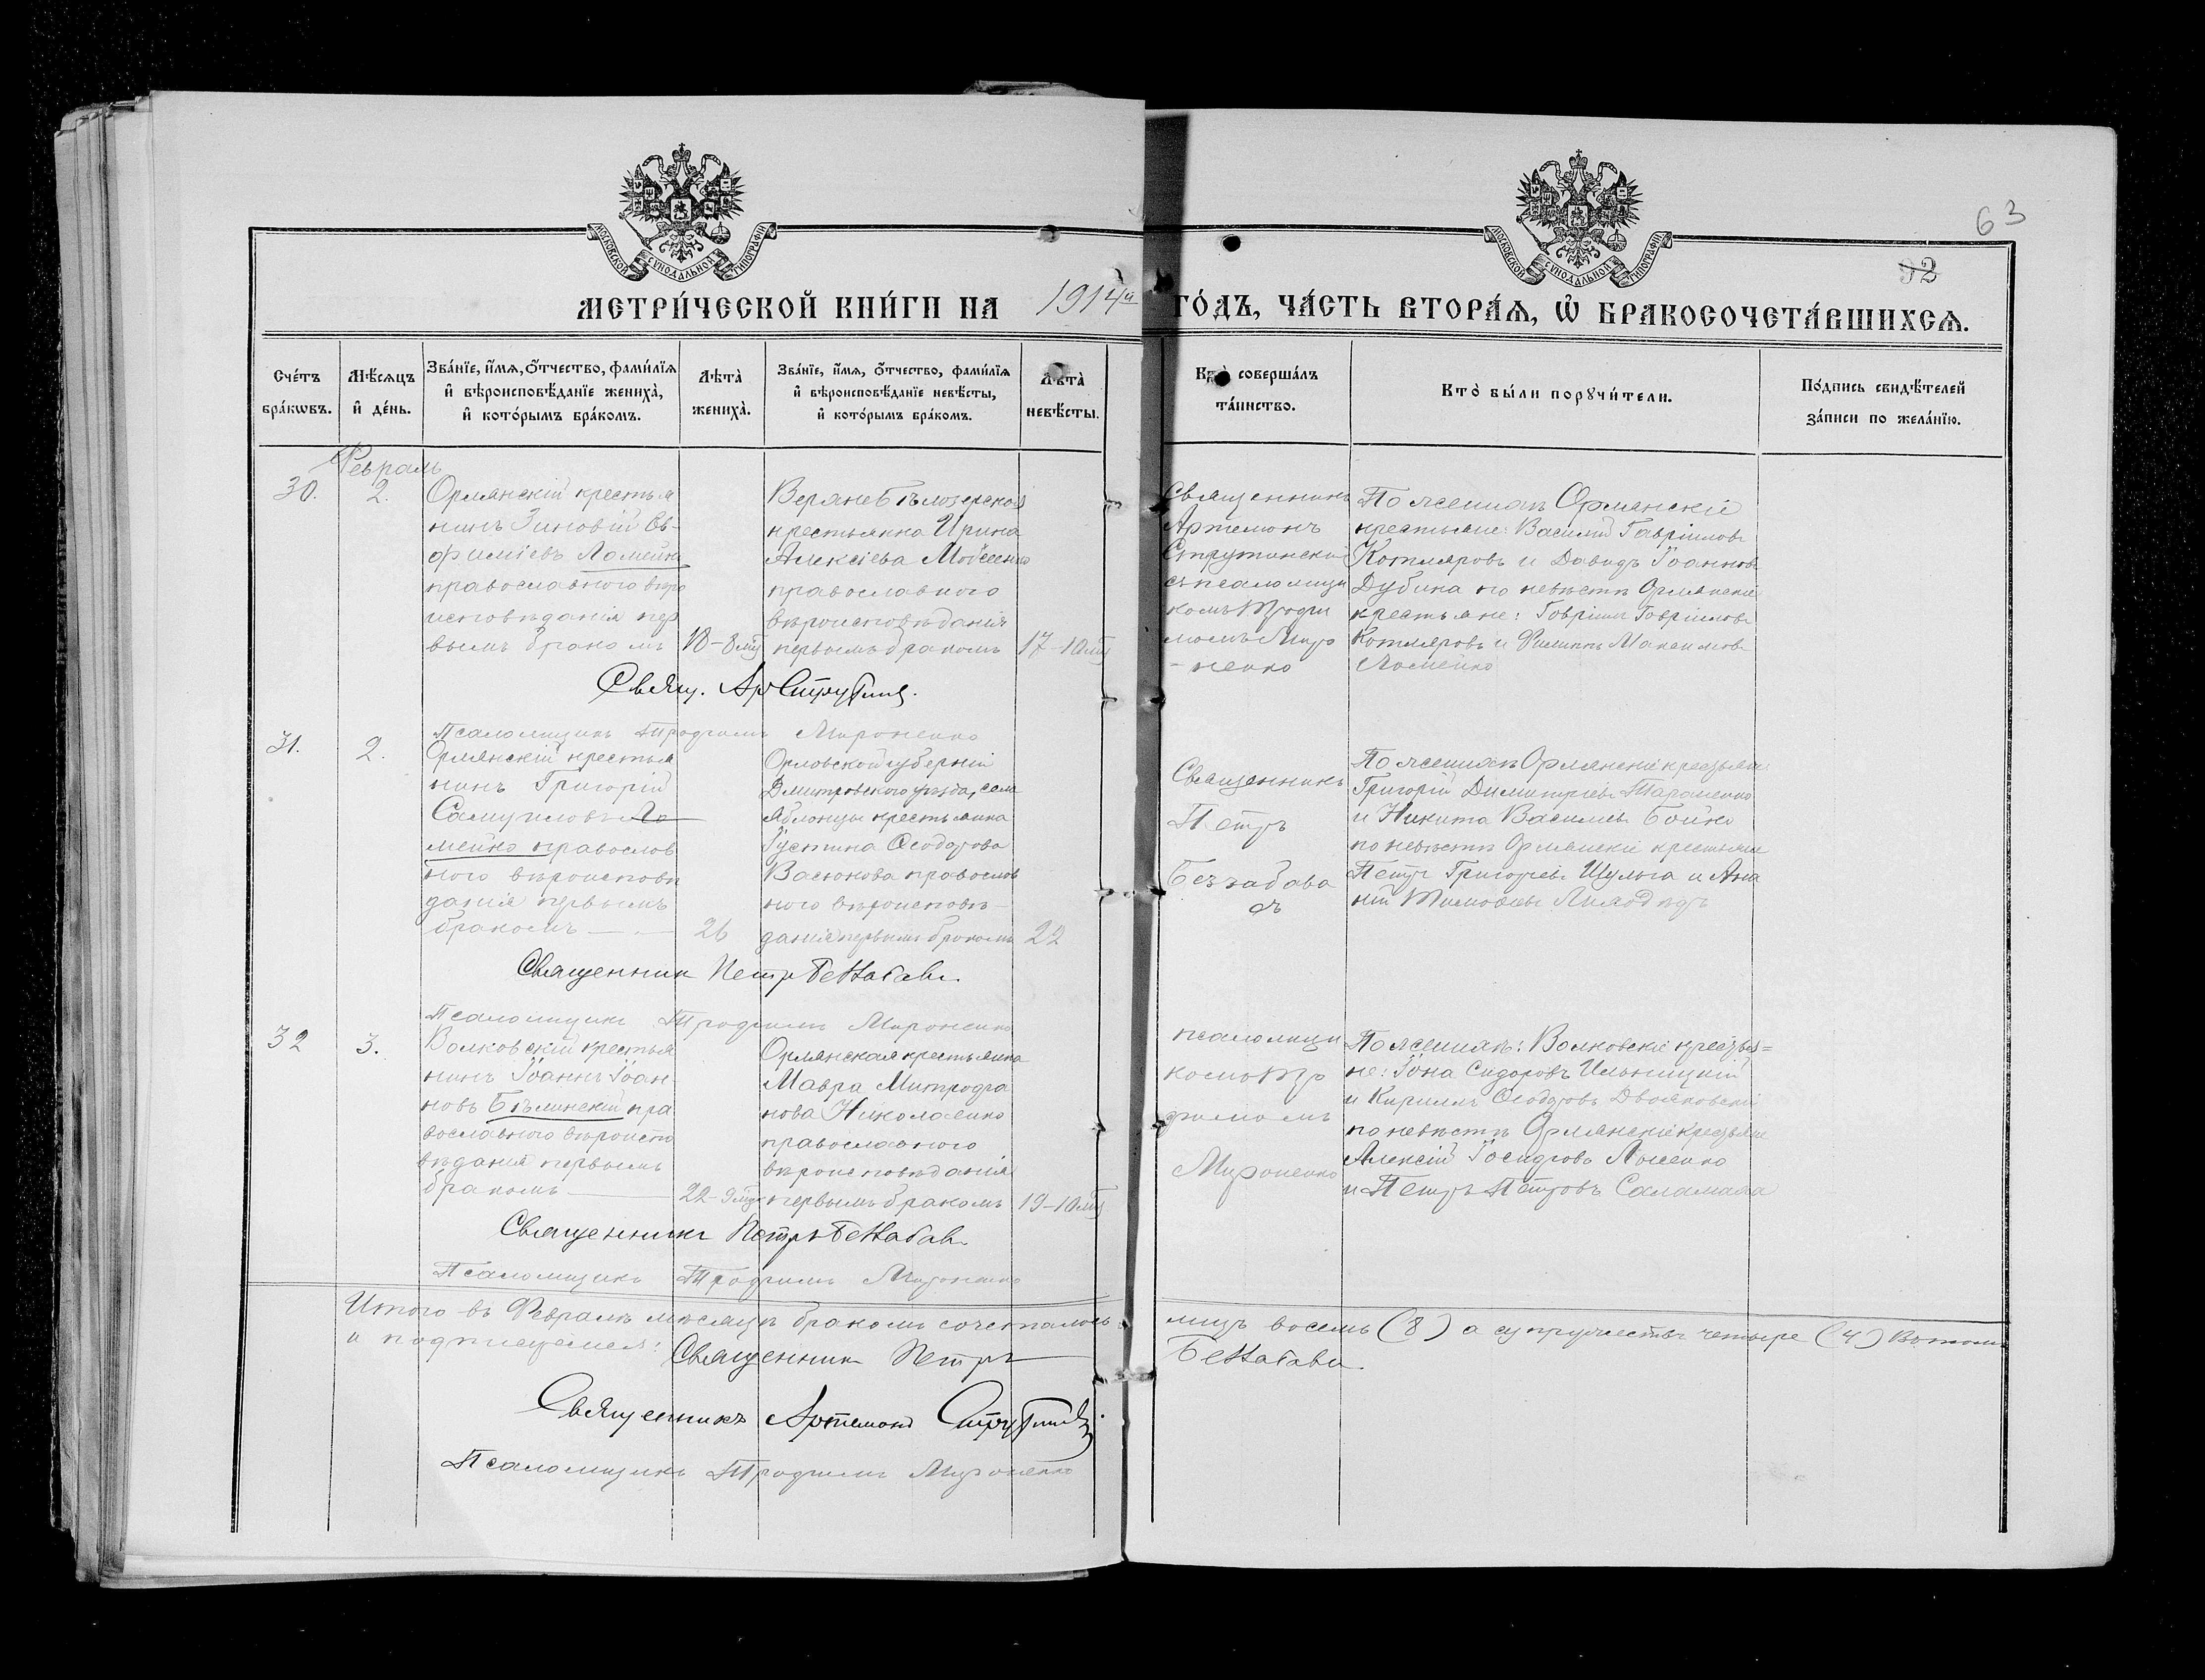 63
92
МОСКОВСКОЙ СѴНОДАЛЬНОЙ ТИПОГРАФІИ
МОСКОВСКОЙ СѴНОДАЛЬНОЙ ТИПОГРАФІИ
МЕТРИ́ЧЕСКОЙ КНИ́ГИ НА 1914й ГО́ДЪ, ЧА́СТЬ ВТОРА́Ѧ, Ѽ БРАКОСОЧЕТА́ВШИХСѦ.
Сче́тъ бра́кѡвъ.
Мѣ́сѧцъ и҆ де́нь.
Зва́нїе, и҆́мѧ, ѻ҆́тчество, фами́лїѧ
и҆ вѣроисповѣ́данїе жениха̀,
и҆ кото́рымъ бра́комъ.
Лѣта̀ жениха̀.
Зва́нїе, и҆́мѧ, ѻ҆́тчество, фами́лїѧ
и҆ вѣроисповѣ́данїе невѣ́сты,
и҆ кото́рымъ бра́комъ.
Лѣта̀ невѣ́сты.
Кто̀ соверша́лъ
та́инство.
Кто̀ бы́ли порꙋчи́тели.
По́дпись свидѣ́телей
за́писи по жела́нїю.
Февраль
30.
2.
Орлянскій крестья
нинъ Зиновій Ев-
фиміевъ Ломейко
православного вѣро
исповѣданія пер
вымъ бракомъ
18-8 мѣ
крестьянка Ирина
Алексіева Моисеенко
православного
вѣроисповѣданія
первымъ бракомъ
17-10 мѣ
Священникъ
Артемонъ
Струтинскій
съ псаломщи
комъ Трофи
момъ Миро
-ненко
По женихѣ Орлянскіе
крестьяне: Василій Гавріиловъ
Котляровъ и Давидъ Іоанновъ
Дубина по невѣстѣ Орлянскіе
крестьяне: Гавріилъ Гавріиловъ
Котляровъ и Филиппъ Максимовъ
Ломейко
Свящ. Ар Струтинс.
Псаломщикъ Трофимъ Мироненко
31.
2.
Орлянскій крестья
нинъ Григорій
Самуиловъ Ло
мейко православ
ного вѣроисповѣ
данія первымъ
бракомъ
26
Орловской губерніи
Дмитровского уѣзда, села
Яблонцы крестьянка
Іустина Ѳеодорова
Васюкова православ
ного вѣроисповѣ-
данія первымъ бракомъ
22
Священникъ
Петръ
Беззабава
съ
По женихѣ Орлянскіе крестьяне
Григорій Димитріевъ Тараненко
и Никита Васильевъ Бойко
по невѣстѣ Орлянскіе крестьяне
Петръ Григорьевъ Шульга и Ана
ній Тимофеевъ
Священникъ Петръ Беззабава
Псаломщикъ Трофимъ Мироненко
32
3.
Волковскій крестья
нинъ Іоаннъ Іоан
новъ Бѣлинскій пра
вославного вѣроиспо
вѣданія первымъ
бракомъ
22-9 мѣ
Орлянская крестьянка
Мавра Митрофа
нова Николаенко
православного
вѣроисповѣданія
первымъ бракомъ
19-10 мѣ
псаломщи
комъ Тро
фимомъ
Мироненко
По женихѣ: Волковскіе крестья=
не: Іона Сидоровъ Ильницкій
и Кириллъ Ѳеодоровъ Двояковскій
по невѣстѣ Орлянскіе крестьяне
Алексій Іосифовъ
и Петръ Петровъ Саламаха
Священникъ Петръ Беззабава
Псаломщикъ Трофимъ Мироненко
Итого въ Февралѣ мѣсяцѣ бракомъ сочеталось лицъ восемь (8) а супружествъ четыре (4) въ томъ
и подписуемся: Священникъ Петръ Беззабава
Священникъ Артемонъ Струтинск
Псаломщикъ Трофимъ Мироненко